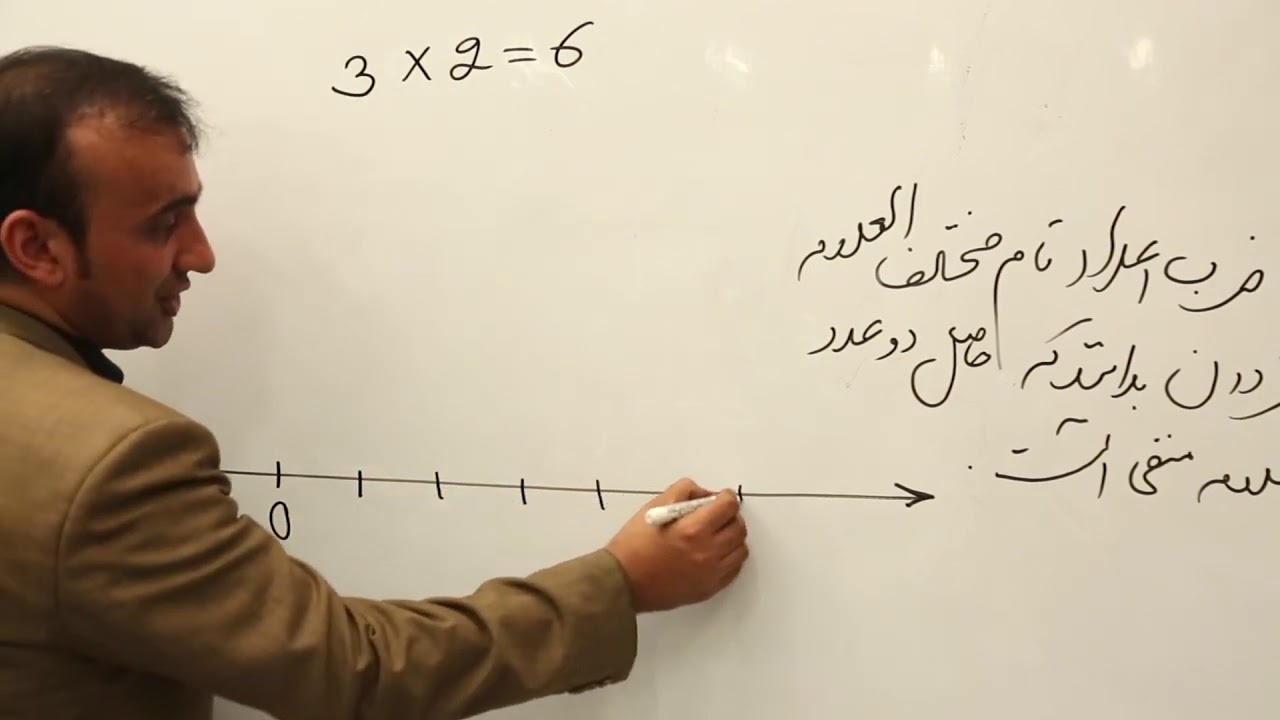 3 × 2 = 6
ضرب اعداد تام مختلف العلامه
بدانند که حاصل دو عدد
منفی است.
0